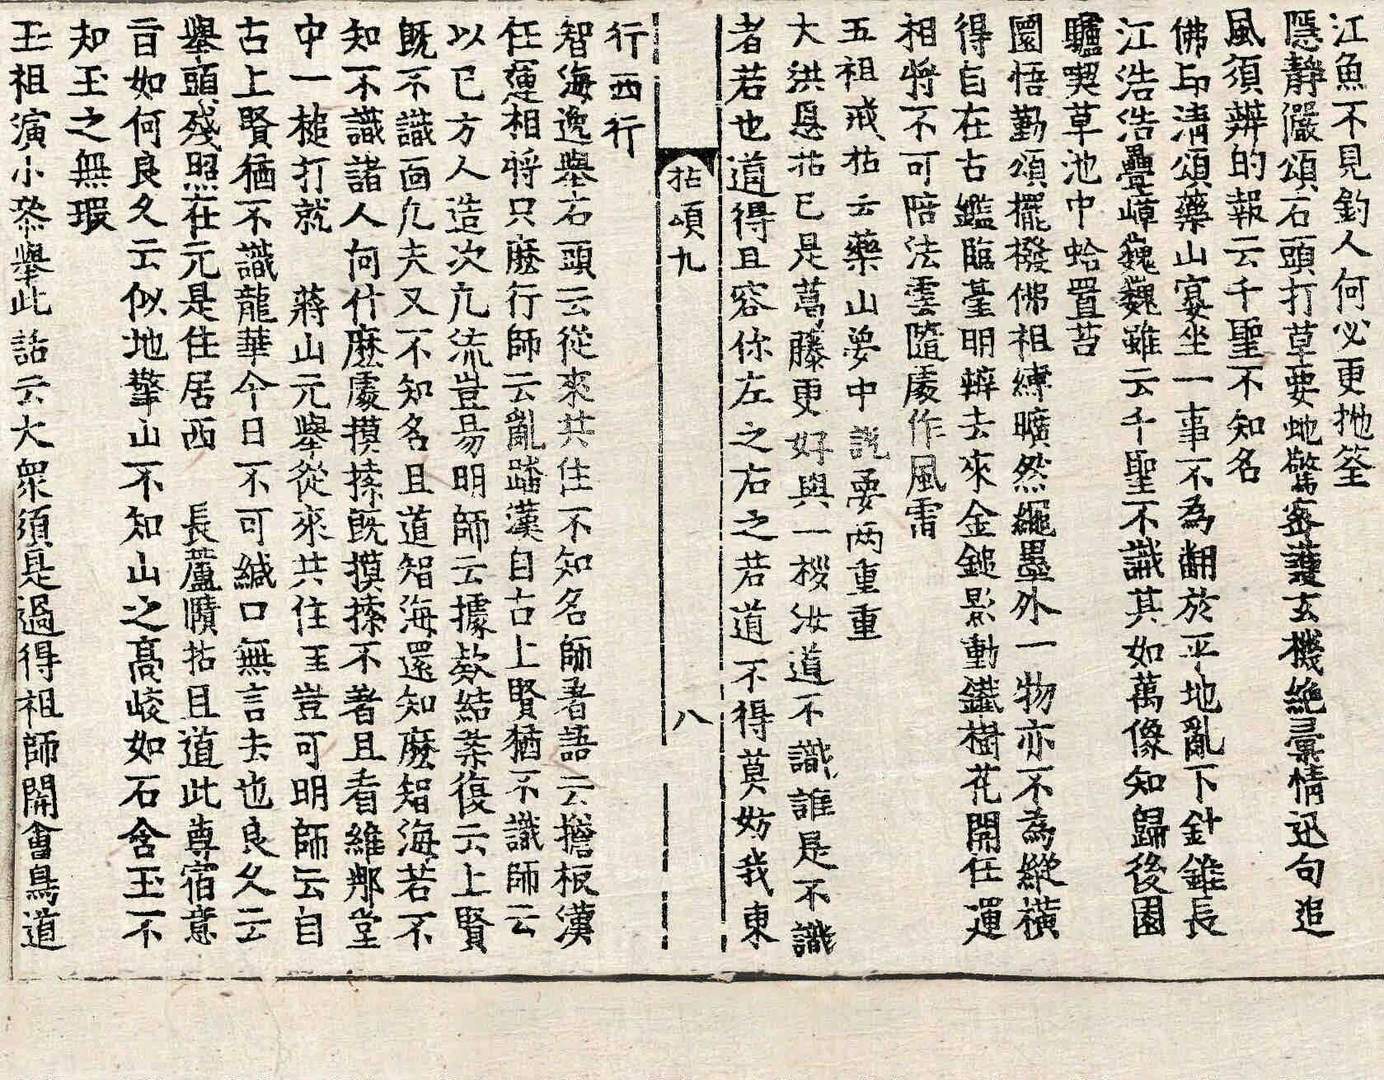 江魚不見釣人何必更抛筌
隱靜儼頌石頭打草要虵驚密護玄機絶彙情迅句追
風須辨的報云千聖不知名
佛印淸頌藥山宴坐一事不為翻於平地亂下針錐長
江浩浩疊嶂巍巍雖云千聖不識其如萬像知歸後園
驢喫草池中蛤置苔
圜悟勤頌擺撥佛祖縛曠然繩墨外一物亦不為縱橫
得自在古鑑臨臺明辨去來金鎚影動鐵樹花開任運
相將不可陪法雲隨處作風雷
五祖戒拈云藥山夢中說夢两重重
大洪恩拈已是葛藤更好與一拶汝道不識誰是不識
者若也道得且容你左之右之若道不得莫妨我東
拈頌九
八
行西行
智海逸擧石頭云從來共住不知名師著語云擔板漢
任運相將只麽行師云亂踏漢自古上賢猶不識師云
以已方人造次凢流豈易明師云據欵結案復云上賢
旣不識面凢夫又不知名且道智海還知麽智海若不
知不識諸人向什麽處摸㨿旣摸㨿不著且看維那堂
中一槌打就　蔣山元擧從來共住至豈可明師云自
古上賢猶不識龍華今日不可緘口無言去也良久云
擧頭殘照在元是住居西　長蘆賾拈且道此尊宿意
旨如何良久云似地擎山不知山之高峻如石含玉不
知玉之無瑕
五祖演小叅擧此話云大衆須是過得祖師關會鳥道